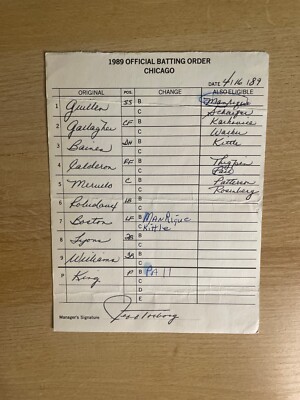 1989 OFFICIAL BATTING ORDER
CHICAGO
DATE 4/16/89
ORIGINAL POS. CHANGE ALSO ELIGIBLE
1 Guillen SS B Manrique
C Schaefer
2 Gallagher CF B Karkovice
C Walker
3 Baines DH B Kittle
C
4 Calderon RF B Thigpen
C Pall
5 Merullo C B Patterson
C Rosenberg
6 B
C
7 Boston LF B MANRIQUE
C Kittle
8 Lyons 2B B
C
9 Williams 3B B
C
P King P B PALL
C
D
E
Manager's Signature